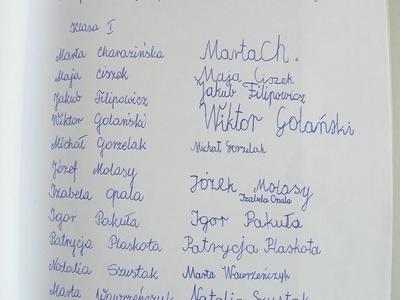 Klasa I
Marta Charazińska Marta Ch.
Maja Ciszek Maja Ciszek
Jakub Filipowicz Jakub Filipowicz
Wiktor Golański Wiktor Golański
Michał Gorzelak Michał Gorzelak
Józef Molasy Józek Molasy
Izabela Opala Izabela Opala
Igor Pakuła Igor Pakuła
Patrycja Plaskota Patrycja Plaskota
Natalia Szustak Marta Wawrzeńczyk
Marta Wawrzeńczyk Natalia Szustak